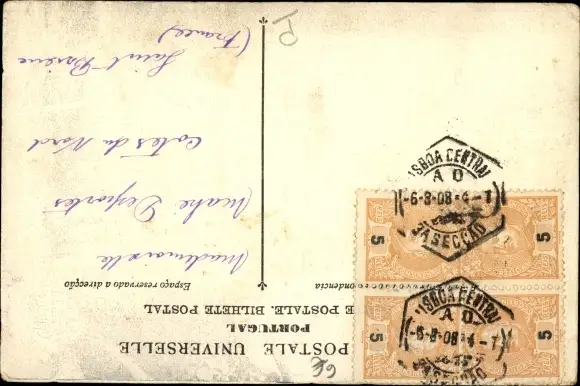 POSTALE UNIVERSELLE
PORTUGAL
E POSTALE. BILHETE POSTAL
pondencia
Espaço reservado a direcção
Mademoiselle
Desportes
Cotes du Nord
Saint Brieuc
(France)
T
5
5
5
5
LISBOA CENTRAL
A D
-6-8-08-4-T
3ª SECCÃO
LISBOA CENTRAL
A D
-6-8-08-4-T
3ª SECCÃO